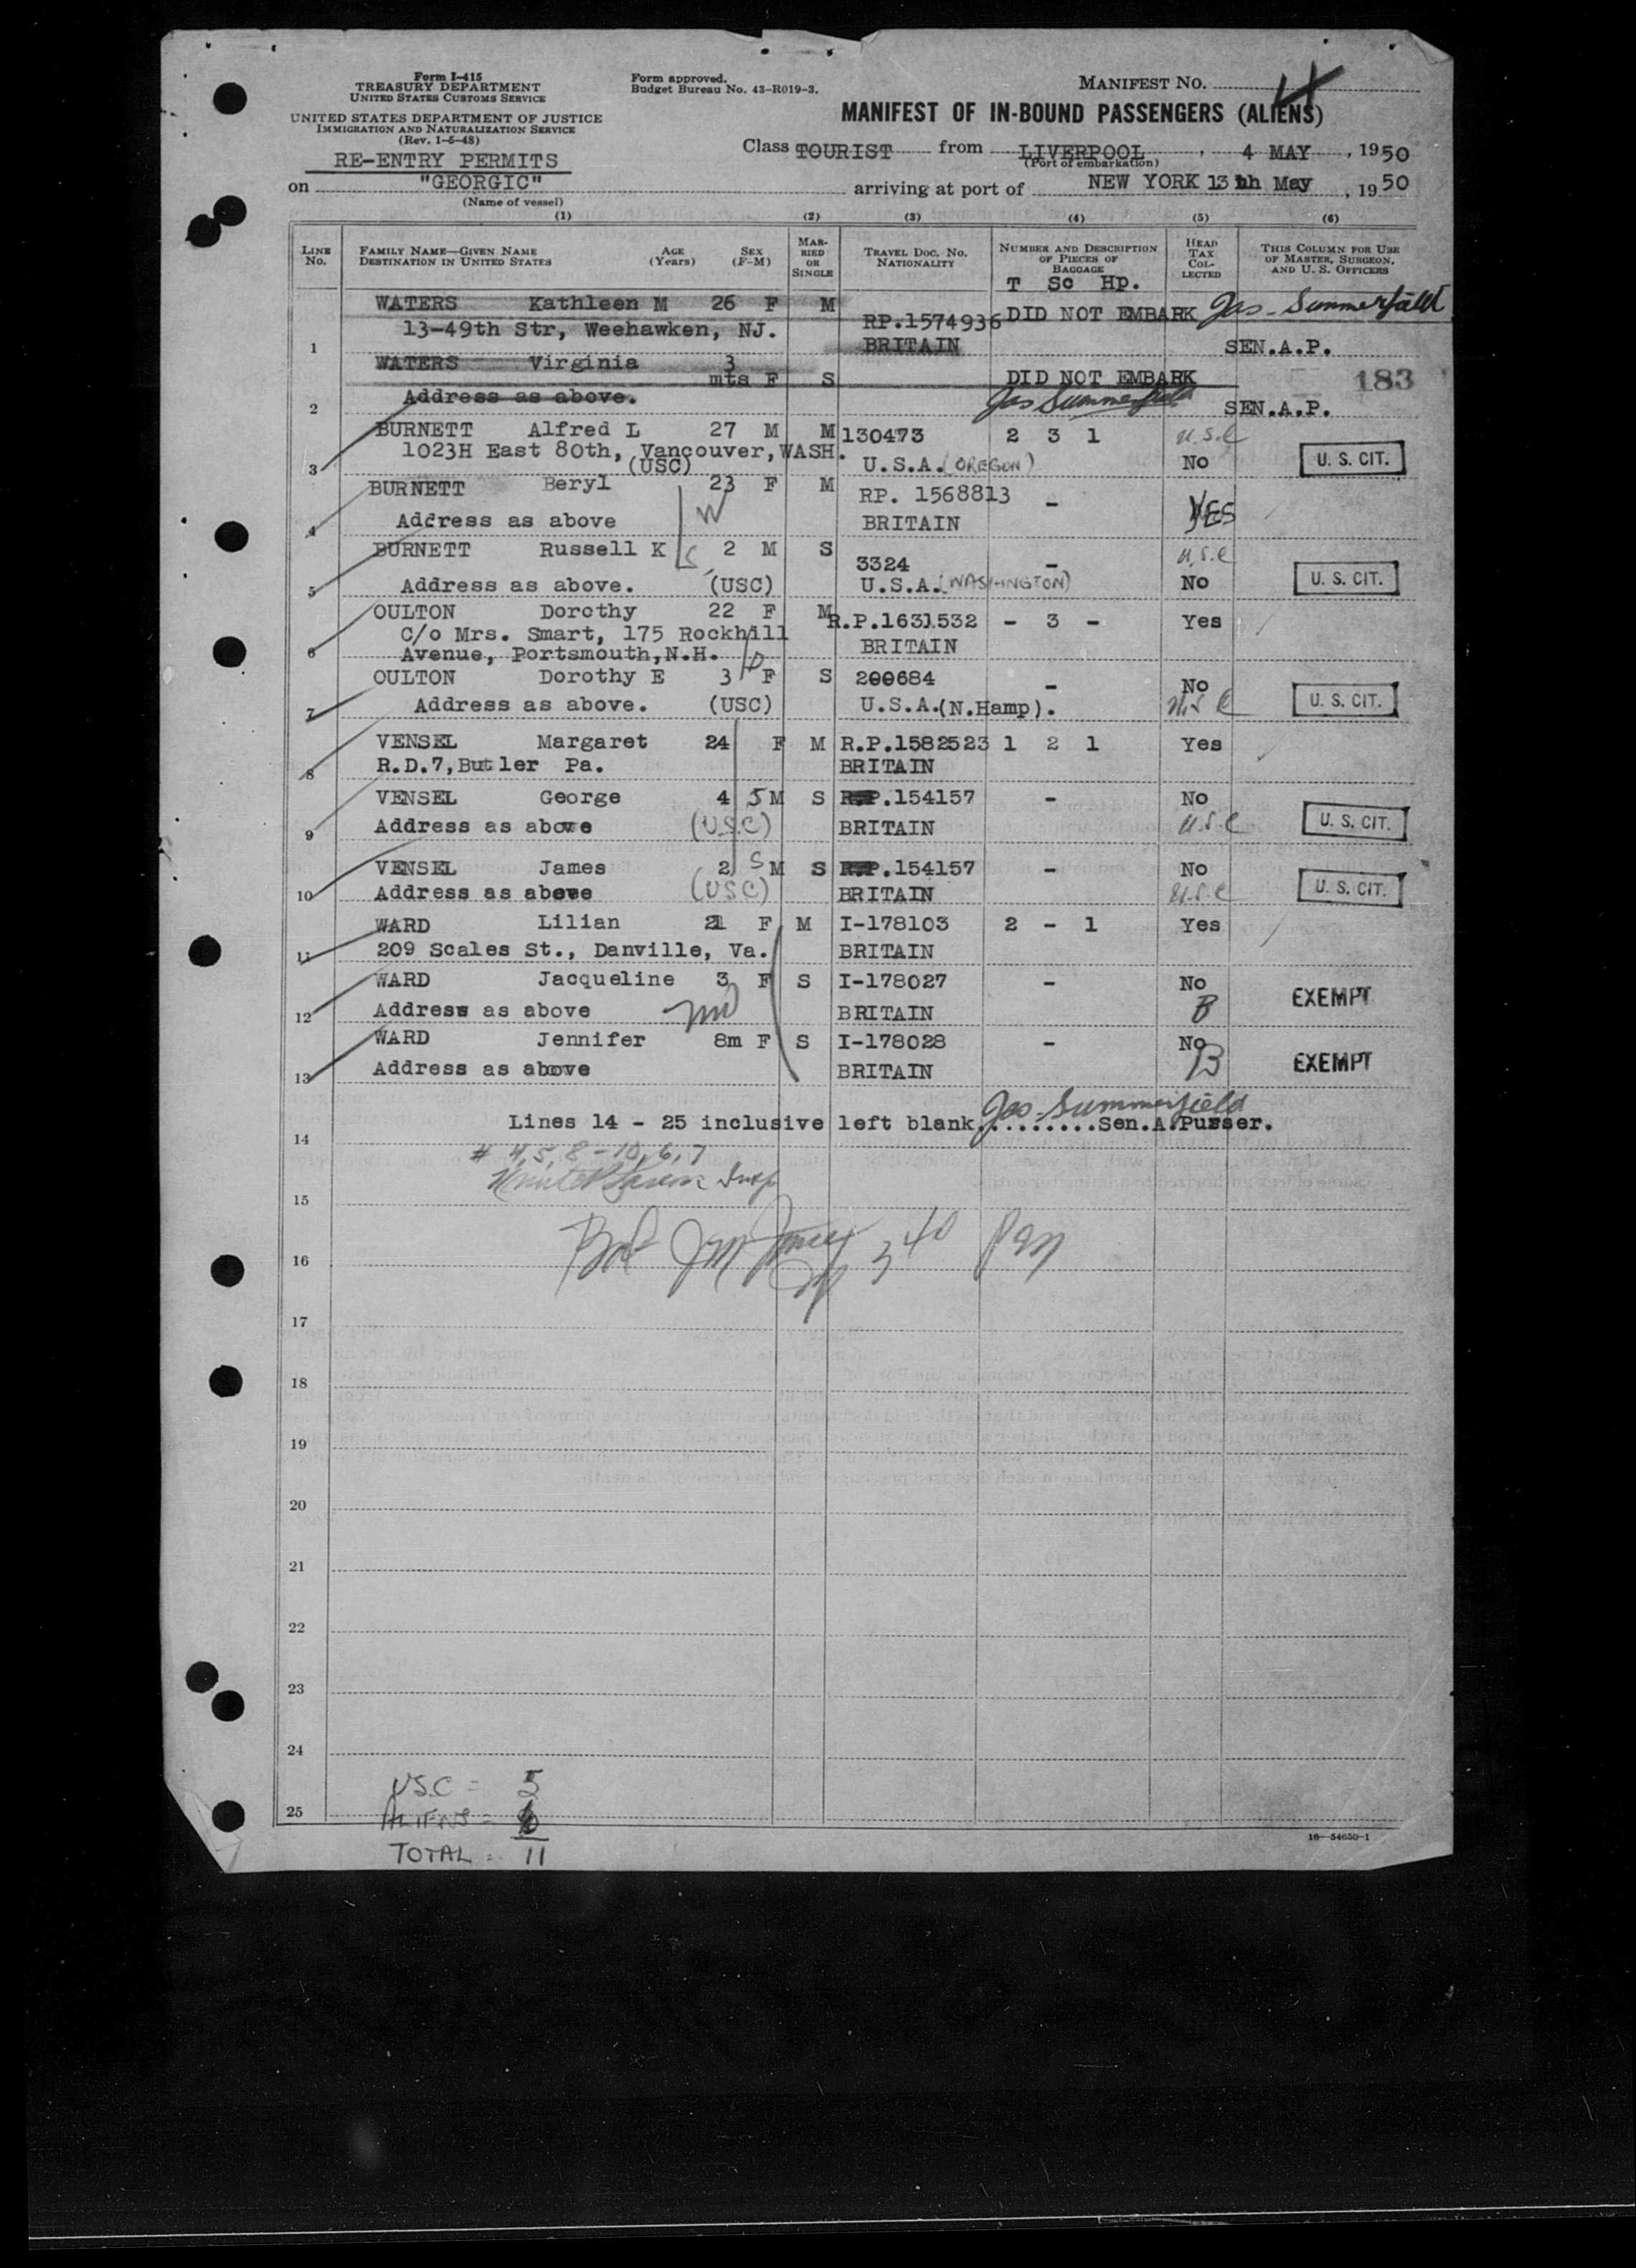 Form I-415
TREASURY DEPARTMENT
UNITED STATES CUSTOMS SERVICE
UNITED STATES DEPARTMENT OF JUSTICE
IMMIGRATION AND NATURALIZATION SERVICE
(Rev. 1-5-48)
Form approved.
Budget Bureau No. 43-R019-3.
MANIFEST NO.
MANIFEST OF IN-BOUND PASSENGERS (ALIENS)
Class TOURIST from LIVERPOOL, 4 MAY, 1950
(Port of embarkation)
RE-ENTRY PERMITS
on "GEORGIC" arriving at port of NEW YORK 13 th May, 1950
(Name of vessel)
(1) (2) (3) (4) (5) (6)
LINE No. FAMILY NAME—GIVEN NAME DESTINATION IN UNITED STATES AGE (Years) SEX (F-M) MARRIED OR SINGLE TRAVEL DOC. NO. NATIONALITY NUMBER AND DESCRIPTION OF PIECES OF BAGGAGE HEAD TAX COLLECTED THIS COLUMN FOR USE OF MASTER, SURGEON, AND U. S. OFFICERS
T Sc Hp.
WATERS Kathleen M 26 F M DID NOT EMBARK Jas. Summerfield
13-49th Str, Weehawken, NJ. RP.1574936
1 BRITAIN SEN.A.P.
WATERS Virginia 3
mts F S DID NOT EMBARK 183
Address as above. Jas Summerfield
2 SEN.A.P.
BURNETT Alfred L 27 M M 130473 2 3 1 U.S.C
1023H East 80th, Vancouver, WASH.
3 (USC) U.S.A. (OREGON) No U. S. CIT.
BURNETT Beryl 23 F M RP. 1568813 -
4 Address as above W BRITAIN YES
BURNETT Russell K 2 M S 3324 - U.S.C
5 Address as above. (USC) U.S.A. (WASHINGTON) No U. S. CIT.
OULTON Dorothy 22 F M R.P.1631532 - 3 - Yes
C/o Mrs. Smart, 175 Rockhill
6 Avenue, Portsmouth, N.H. BRITAIN
OULTON Dorothy E 3 F S 200684 - No
7 Address as above. (USC) U.S.A. (N.Hamp). U.S.C U. S. CIT.
VENSEL Margaret 24 F M R.P.1582523 1 2 1 Yes
8 R.D.7, Butler Pa. BRITAIN
VENSEL George 4 5 M S R.P.154157 - No
9 Address as above (U.S.C) BRITAIN U.S.C U. S. CIT.
VENSEL James 2 S M S R.P.154157 - No
10 Address as above (USC) BRITAIN U.S.C U. S. CIT.
WARD Lilian 21 F M I-178103 2 - 1 Yes
11 209 Scales St., Danville, Va. BRITAIN
WARD Jacqueline 3 F S I-178027 - No
12 Address as above BRITAIN B EXEMPT
WARD Jennifer 8m F S I-178028 - No
13 Address as above BRITAIN B EXEMPT
Lines 14 - 25 inclusive left blank. Jas. Summerfield ........Sen.A.Purser.
14
# 4, 5, 8-10, 6, 7
15
16
17
18
19
20
21
22
23
24
USC = 5
25 ALIENS = 6
TOTAL = 11
16—54650-1